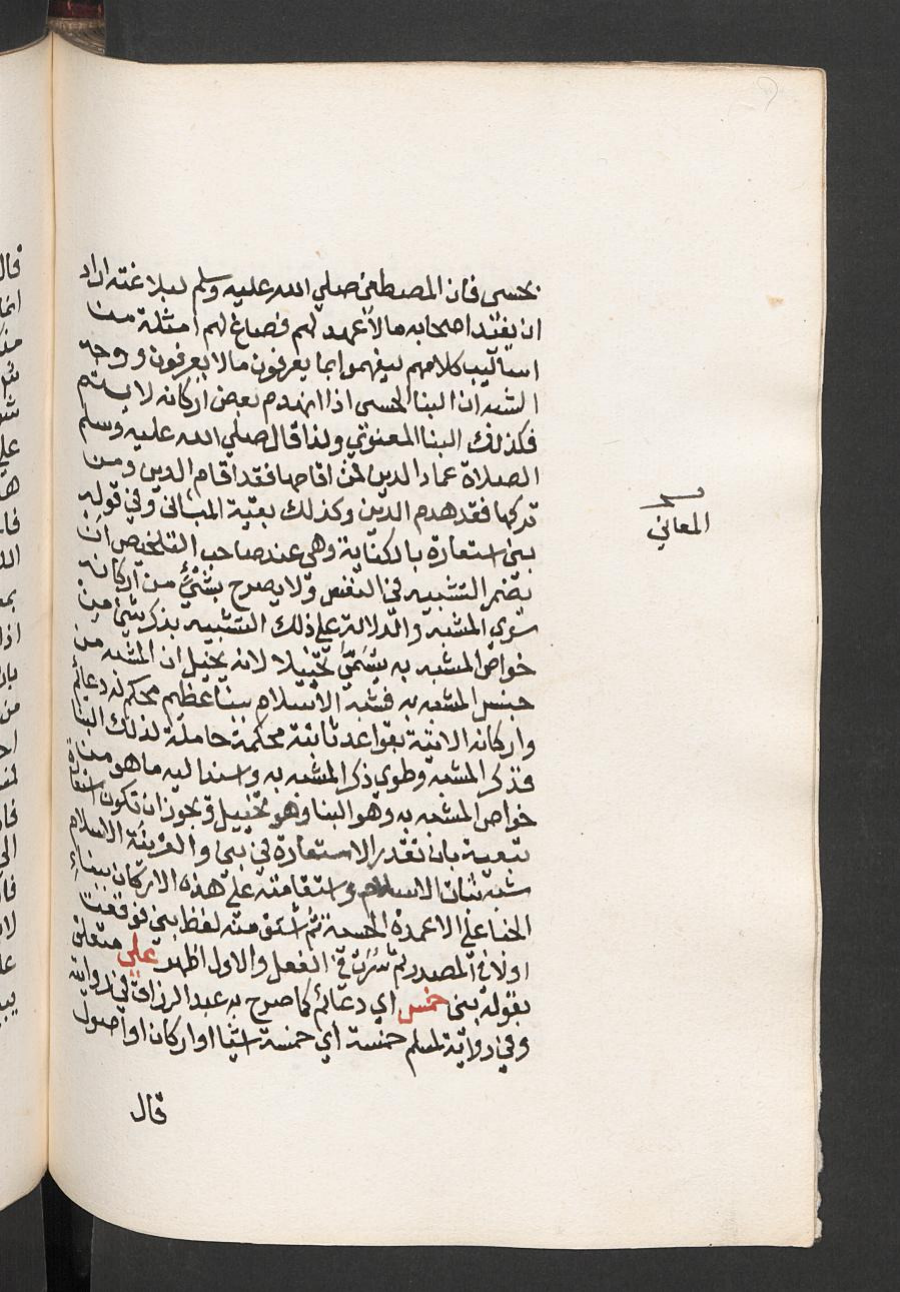 بحسى فان المصطفى صلي الله عليه وسلم لبلاغته اراد
ان يفيد اصحابه مالا عهد لهم فصاغ لهم امثلة من
اساليب كلامهم ليفهموا بما يعرفون مالا يعرفون ووجه
الشبه ان البنا الحسى اذا انهدم بعض اركانه لا يستم
فكذلك البنا المعنوي ولذا قال صلي الله عليه وسلم
الصلاة عماد الدين فمن اقامها فقد اقام الدين ومن
تركها فقد هدم الدين وكذلك بقية المباني وفي قوله
بنى استعارة بالكناية وهي عند صاحب التلخيص ان
يضمر التشبيه في النفس ولا يصرح بشئ من اركانه
سوي المشبه والدلالة علي ذلك التشبيه بذكر شئ من
خواص المشبه به يسمي تخييلا لانه يخيل ان المشبه من
جنس المشبه به فشبه الاسلام ببنا عظيم محكم له دعائم
واركانه الاتية بقواعد ثابتة محكمة حاملة لذلك البنا
فذكر المشبه وطوي ذكر المشبه به واسند اليه ما هو من
خواص المشبه به وهو البنا وهو تخييل ويجوز ان تكون استعارة
تبعية بان تقدر الاستعارة في بنى والقرينة الاسلام
شبه ثبات الاسلام واستقامته علي هذه الاركان ببناء
الخبا علي الاعمدة الخمسة ثم اشتق منه لفظ بني فوقعت
اولا في المصدر ثم سرت في الفعل والاول اظهر علي متعلق
بقوله بنى خمس اي دعائم كما صرح به عبد الرزاق في روايته
وفي رواية لمسلم خمسة اي خمسة اشيا او اركان او اصول
قال
المعاني